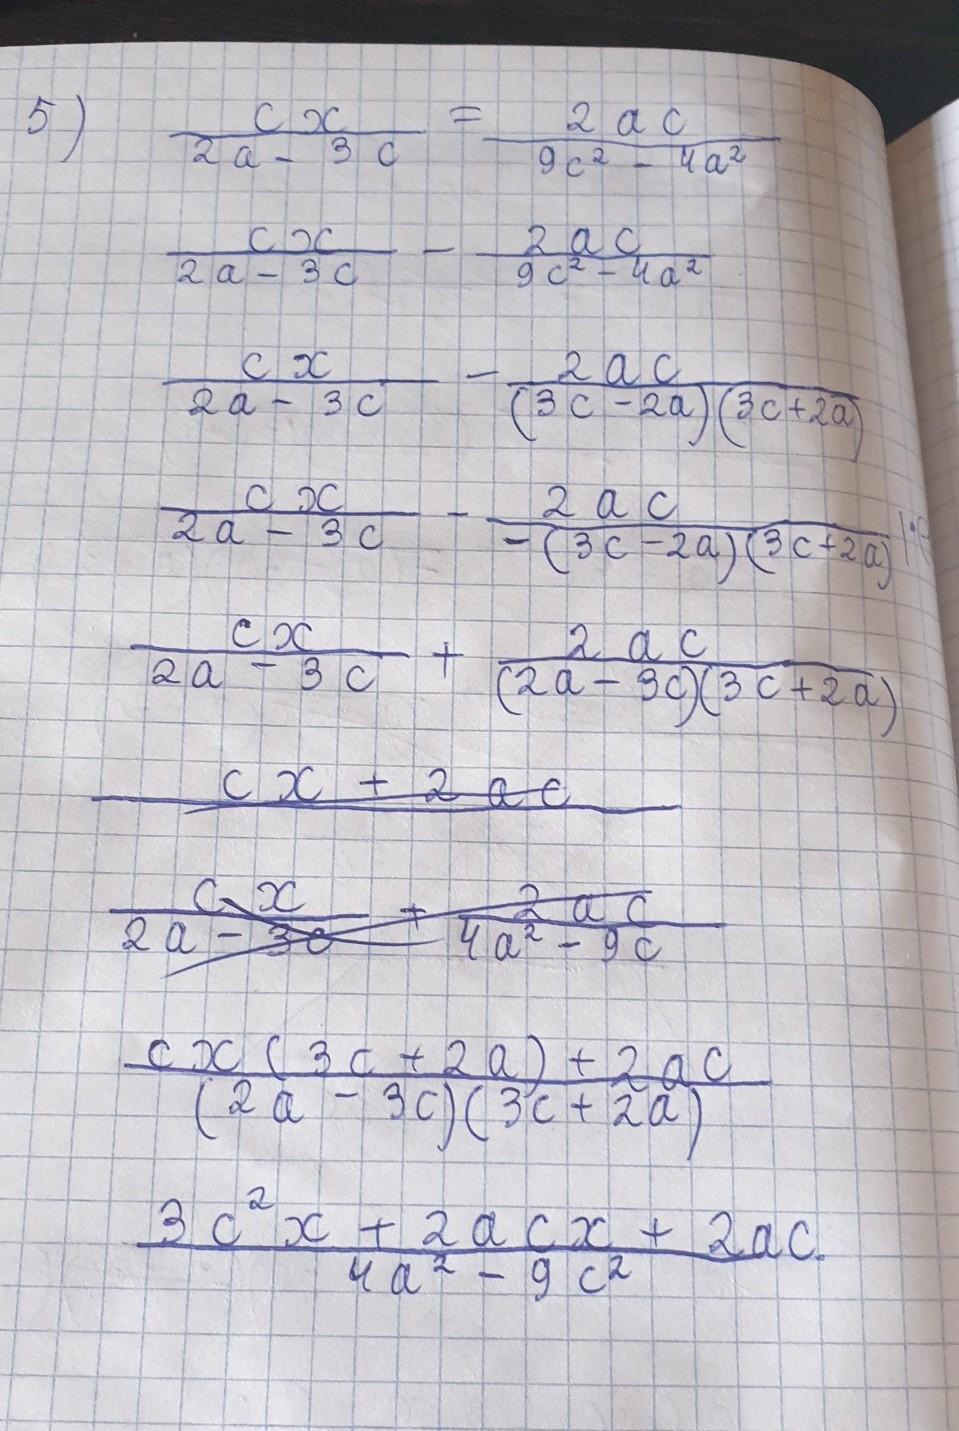 5) \frac{cx}{2a - 3c} = \frac{2ac}{9c^2 - 4a^2}
\frac{cx}{2a - 3c} - \frac{2ac}{9c^2 - 4a^2}
\frac{cx}{2a - 3c} - \frac{2ac}{(3c - 2a)(3c + 2a)}
\frac{cx}{2a - 3c} - \frac{2ac}{-(3c - 2a)(3c + 2a)}
\frac{cx}{2a - 3c} + \frac{2ac}{(2a - 3c)(3c + 2a)}
cx + 2ac
\frac{cx}{2a - 3c} + \frac{2ac}{4a^2 - 9c}
\frac{cx(3c + 2a) + 2ac}{(2a - 3c)(3c + 2a)}
\frac{3c^2x + 2acx + 2ac.}{4a^2 - 9c^2}